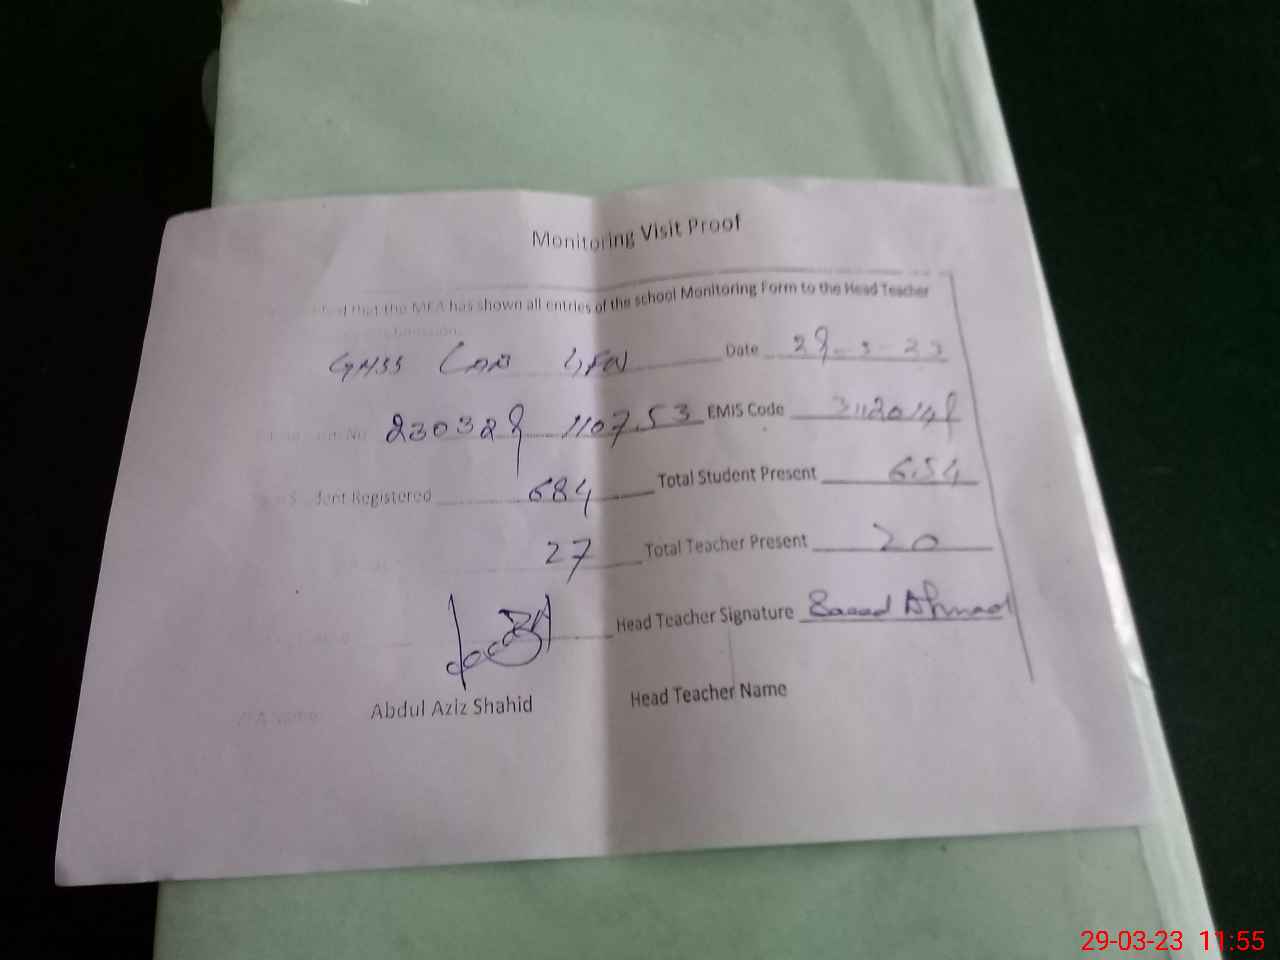 Monitoring Visit Proof
that the MEA has shown all entries of the school Monitoring Form to the Head Teacher
GHSS Date 29-3-23
230329 110753 EMIS Code 31120148
Student Registered 684 Total Student Present 654
27 Total Teacher Present 20
Head Teacher Signature Saeed Ahmad
MEA Name Abdul Aziz Shahid Head Teacher Name
29-03-23 11:55